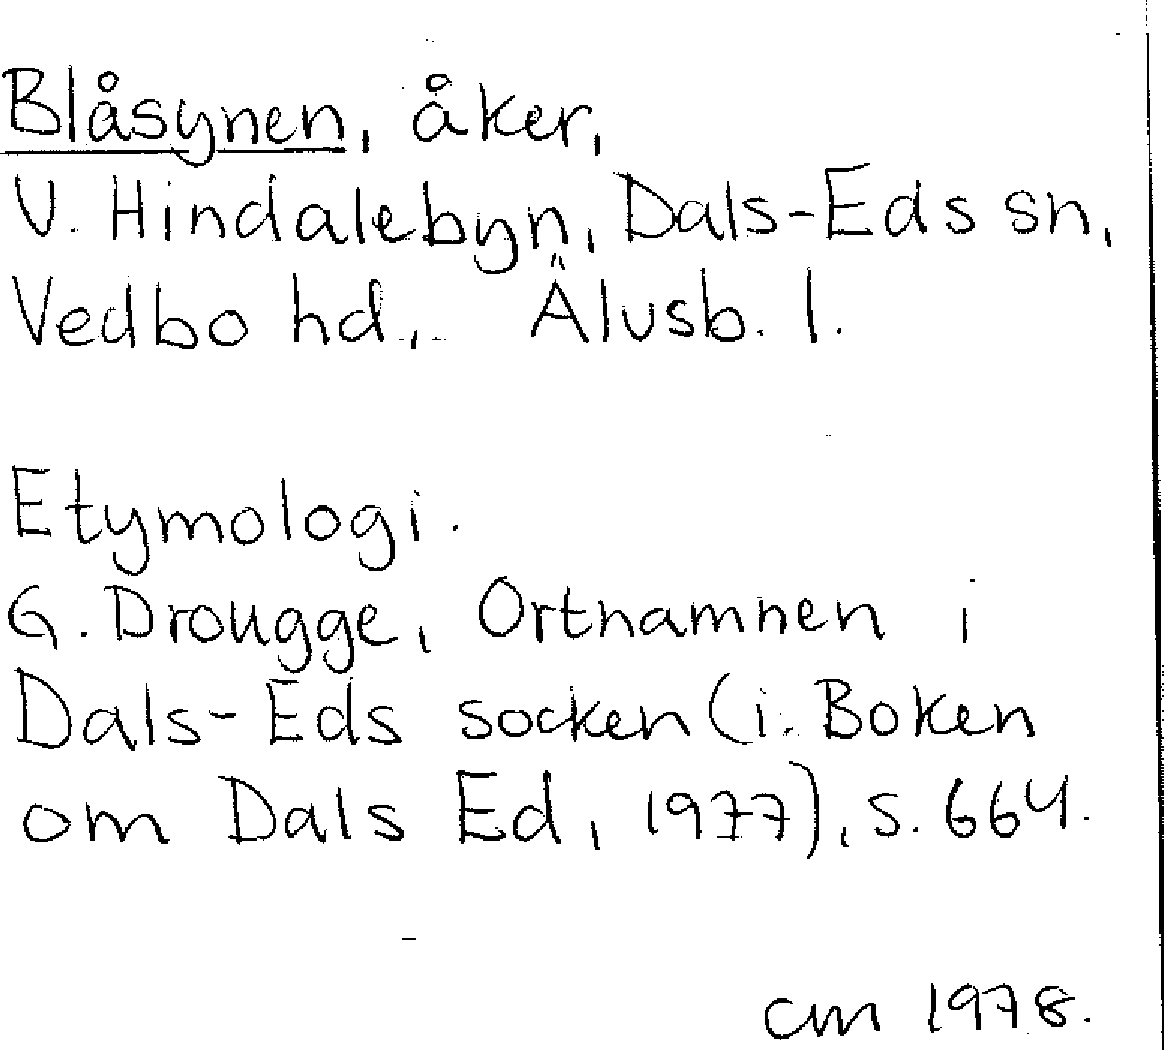 Blåsynen, åker,
V. Hindalebyn, Dals-Eds sn,
Vedbo hd., Älvsb. l.
Etymologi.
G. Drougge, Ortnamnen i
Dals-Eds socken (i: Boken
om Dals Ed, 1977), s. 664.
CM 1978.